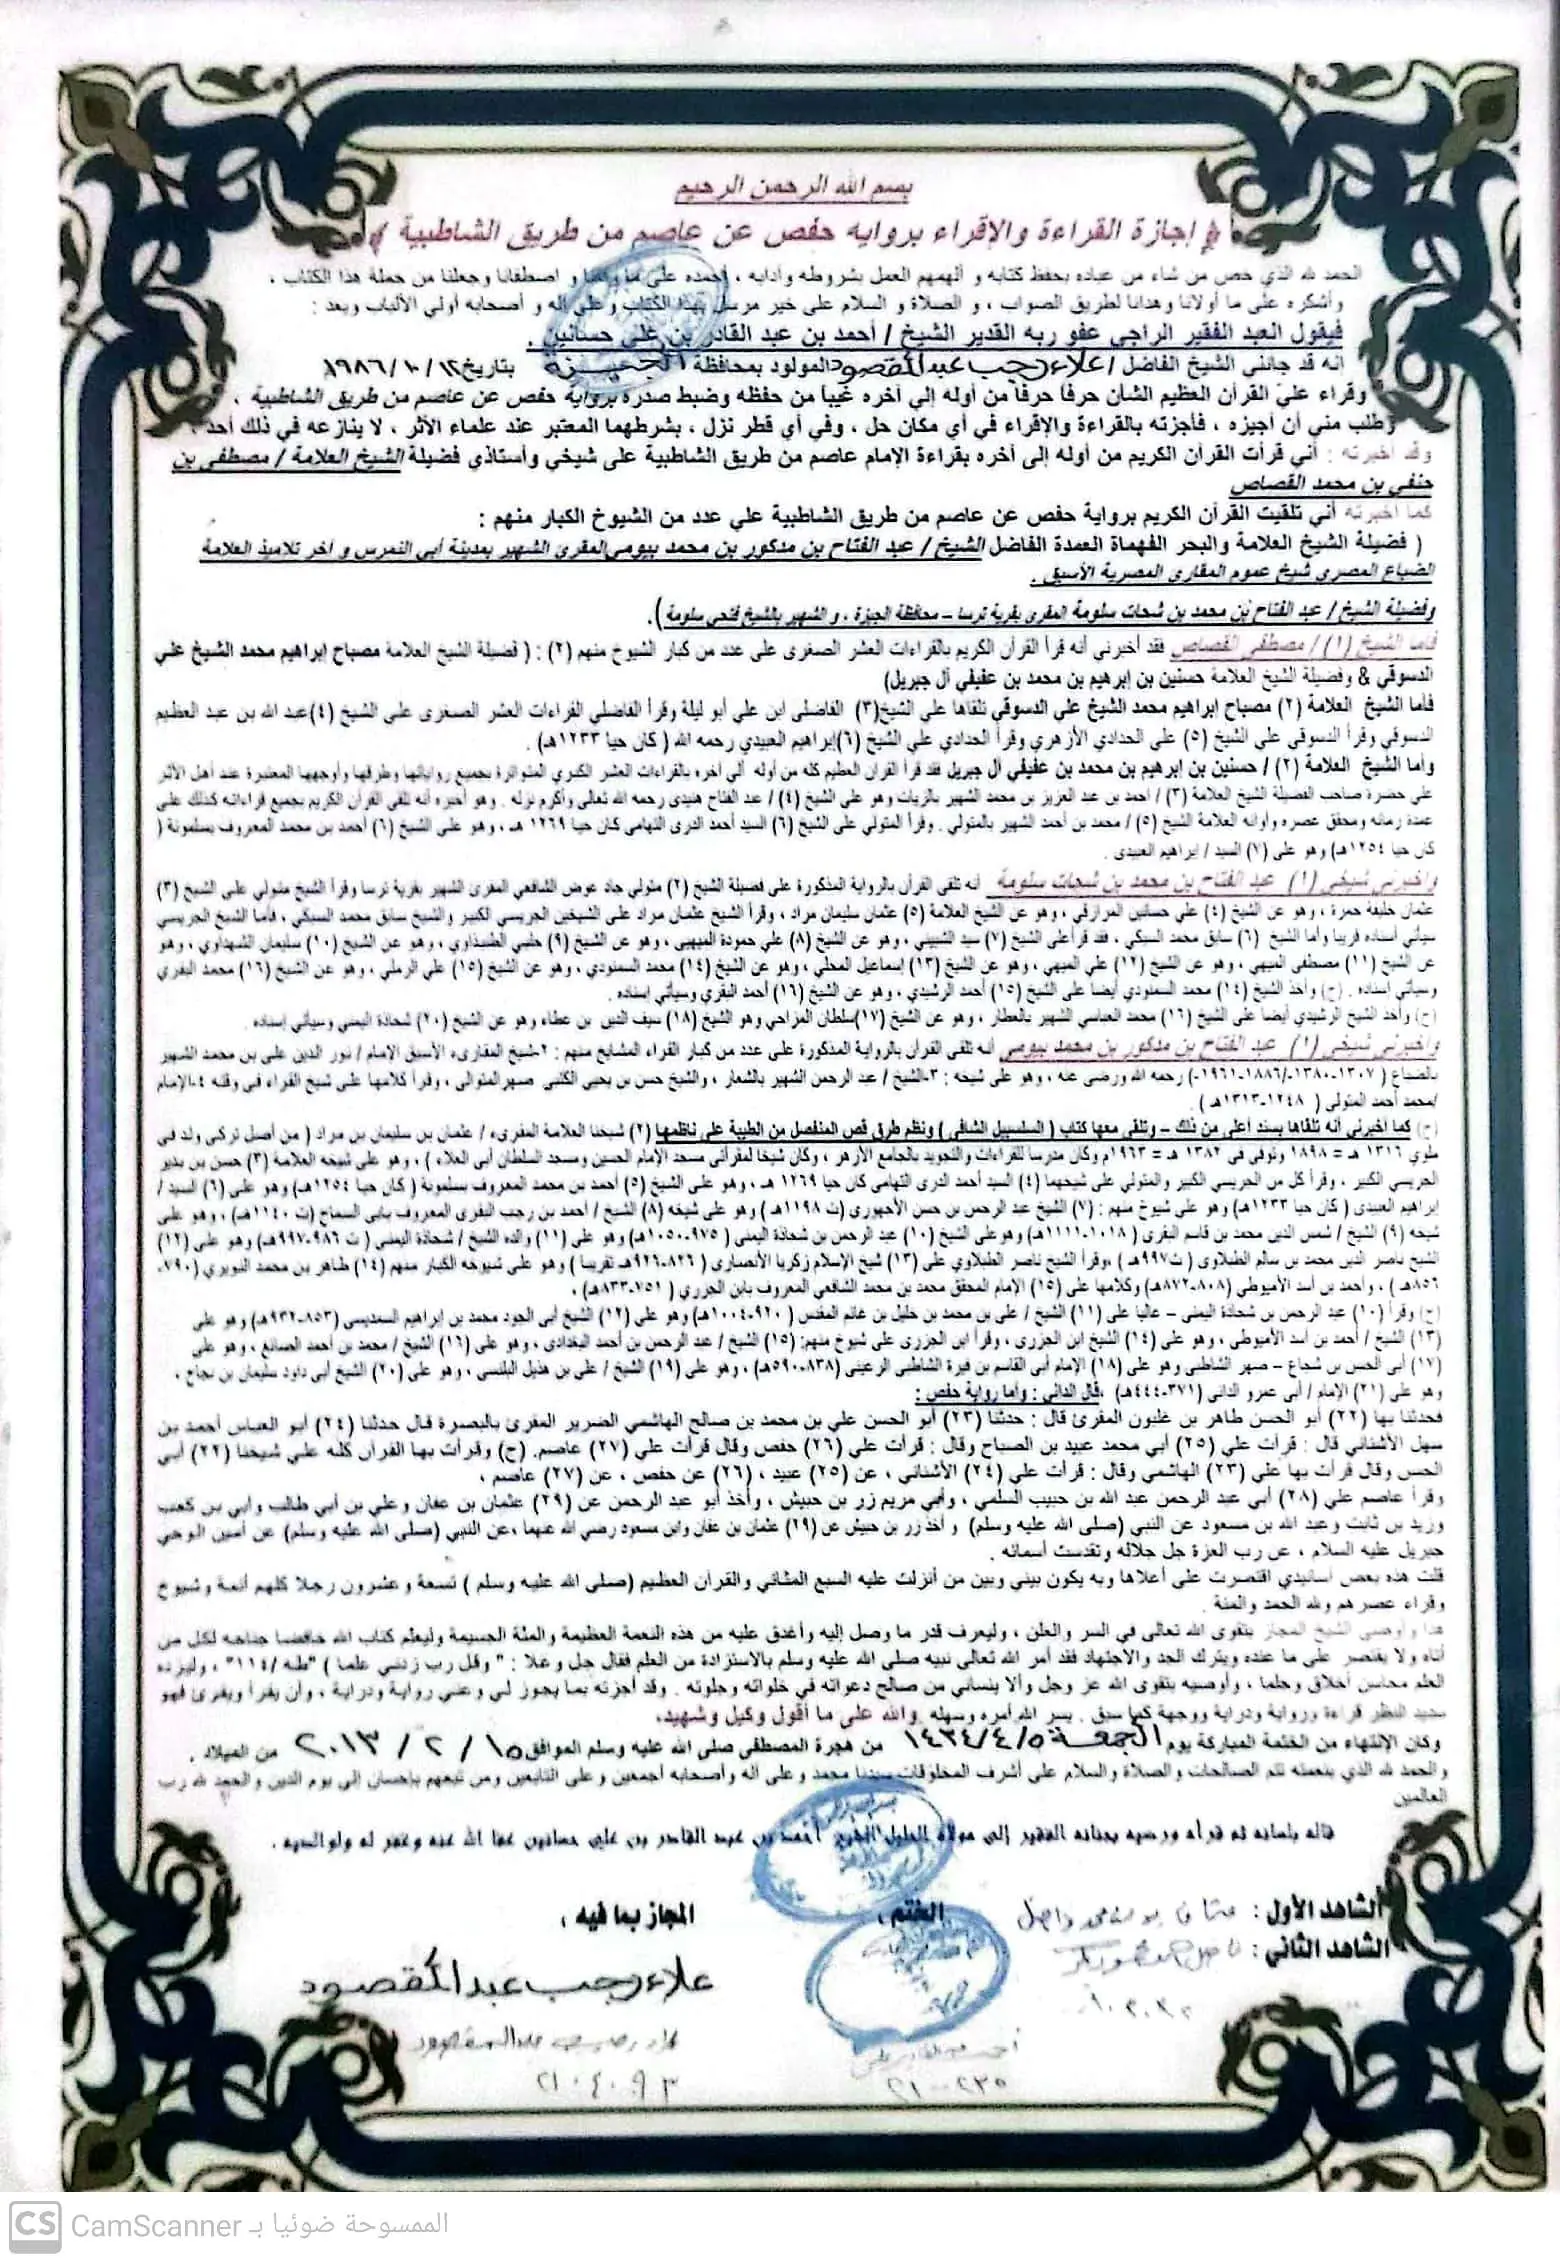 بسم الله الرحمن الرحيم
﴿ إجازة القراءة والإقراء برواية حفص عن عاصم من طريق الشاطبية ﴾
الحمد لله الذي خص من شاء من عباده بحفظ كتابه و ألهمهم العمل بشروطه وأدابه ، أحمده على ما و اصطفانا وجعلنا من حملة هذا الكتاب ،
وأشكره على ما أولانا وهدانا لطريق الصواب ، و الصلاة و السلام على خير مرسل بهذا الكتاب وعلى آله و أصحابه أولي الألباب وبعد :
فيقول العبد الفقير الراجي عفو ربه القدير الشيخ / أحمد بن عبد القادر بن علي حسانين .
انه قد جائني الشيخ الفاضل / علاء رجب عبد المقصود المولود بمحافظة الجيزة بتاريخ ١٢ / ١٠ / ١٩٨٦
وقراء عليّ القرآن العظيم الشأن حرفاً حرفاً من أوله إلي آخره غيباً من حفظه وضبط صدره برواية حفص عن عاصم من طريق الشاطبية ،
وطلب مني أن أجيزه ، فأجزته بالقراءة والإقراء في أي مكان حل ، وفي أي قطر نزل ، بشرطهما المعتبر عند علماء الأثر ، لا ينازعه في ذلك أحد ،
وقد أخبرته : أني قرأت القرآن الكريم من أوله إلى أخره بقراءة الإمام عاصم من طريق الشاطبية على شيخي وأستاذي فضيلة الشيخ العلامة / مصطفى بن
حنفي بن محمد القصاص
كما أخبرته أني تلقيت القرآن الكريم برواية حفص عن عاصم من طريق الشاطبية علي عدد من الشيوخ الكبار منهم :
( فضيلة الشيخ العلامة والبحر الفهامة العمدة الفاضل الشيخ / عبد الفتاح بن مدكور بن محمد بيومي المقرئ الشهير بمدينة أبي النمرس و اخر تلاميذ العلامة
الضباع المصري شيخ عموم المقارئ المصرية الأسبق .
وفضيلة الشيخ / عبد الفتاح بن محمد بن شحات سلومة المقرئ بقرية ترسا – محافظة الجيزة ، و الشهير بالشيخ فتحي سلومة ).
فأما الشيخ (١) / مصطفى القصاص فقد أخبرني أنه قرأ القرآن الكريم بالقراءات العشر الصغرى على عدد من كبار الشيوخ منهم (٢) : ( فضيلة الشيخ العلامة مصباح إبراهيم محمد الشيخ علي
الدسوقي & وفضيلة الشيخ العلامة حسنين بن إبرهيم بن محمد بن عفيفي آل جبريل)
فأما الشيخ العلامة (٢) مصباح إبراهيم محمد الشيخ علي الدسوقي تلقاها علي الشيخ(٣) الفاضلى ابن علي أبو ليلة وقرأ الفاضلي القراءات العشر الصغرى على الشيخ (٤)عبد الله بن عبد العظيم
الدسوقي وقرأ الدسوقي على الشيخ (٥) على الحدادي الأزهري وقرأ الحدادي علي الشيخ (٦)إبراهيم العبيدي رحمه الله ( كان حيا ١٢٣٣هـ) .
وأما الشيخ العلامة (٢) / حسنين بن إبرهيم بن محمد بن عفيفي آل جبريل فقد قرأ القرآن العظيم كله من أوله الي آخره بالقراءات العشر الكبري المتواترة بجميع رواياتها وطرقها وأوجهها المعتبرة عند أهل الأثر
على حضرة صاحب الفضيلة الشيخ العلامة (٣) / احمد بن عبد العزيز بن محمد الشهير بالزيات وهو على الشيخ (٤) / عبد الفتاح هنيدي رحمه الله تعالى وأكرم نزله . وهو أخبره أنه تلقى القرآن الكريم بجميع قراءاته كذلك على
عمدة زمانه ومحقق عصره وأوانه العلامة الشيخ (٥) / محمد بن أحمد الشهير بالمتولي . وقرأ المتولي على الشيخ (٦) السيد أحمد الدرى التهامى كان حيا ١٢٦٩ هـ ، وهو على الشيخ (٦) أحمد بن محمد المعروف بسلمونة (
كان حيا ١٢٥٤هـ) وهو على (٧) السيد / إبراهيم العبيدى .
وأخبرني شيخي (١) عبد الفتاح بن محمد بن شحات سلومة أنه تلقى القرآن بالرواية المذكورة على فضيلة الشيخ (٢) متولي جاد عوض الشافعي المقرئ الشهير بقرية ترسا وقرأ الشيخ متولي على الشيخ (٣)
عثمان خليفة حمزة ، وهو عن الشيخ (٤) علي حسانين المرازقي ، وهو عن الشيخ العلامة (٥) عثمان سليمان مراد ، وقرأ الشيخ عثمان مراد على الشيخين الجريسي الكبير والشيخ سابق محمد السبكي ، فأما الشيخ الجريسي
سيأتي أسناده قريبا وأما الشيخ (٦) سابق محمد السبكي ، فقد قرأعلى الشيخ (٧) سيد الشبيني ، وهو عن الشيخ (٨) علي حمودة الميهيي ، وهو عن الشيخ (٩) حلبي الطنداوي ، وهو عن الشيخ (١٠) سليمان الشهداوي ، وهو
عن الشيخ (١١) مصطفى الميهي ، وهو عن الشيخ (١٢) علي الميهي ، وهو عن الشيخ (١٣) إسماعيل المحلي ، وهو عن الشيخ (١٤) محمد السمنودي ، وهو عن الشيخ (١٥) علي الرملي ، وهو عن الشيخ (١٦) محمد البقري
وسيأتي إسناده . (ح) وأخذ الشيخ (١٤) محمد السمنودي أيضا على الشيخ (١٥) أحمد الرشيدي ، وهو عن الشيخ (١٦) أحمد البقري وسيأتي إسناده .
(ح) وأخذ الشيخ الرشيدي أيضا على الشيخ (١٦) محمد العباسي الشهير بالعطار ، وهو عن الشيخ (١٧)سلطان المزاحي وهو الشيخ (١٨) سيف الدين بن عطاء وهو عن الشيخ (٢٠) شحاذة اليمني وسيأتي إسناده .
وأخبرني شيخي (١) عبد الفتاح بن مدكور بن محمد بيومي أنه تلقى القرآن بالرواية المذكورة على عدد من كبار القراء المشايخ منهم : ٢-شيخ المقارىء الأسبق الإمام / نور الدين على بن محمد الشهير
بالضباع ( ١٣٠٧-١٣٨٠/-١٨٨٦-١٩٦١) رحمه الله ورضى عنه ، وهو على شيخه : ٣-الشيخ / عبد الرحمن الشهير بالشعار ، والشيخ حسن بن يحيى الكتبى صهرالمتوالى ، وقرأ كلامها على شيخ القراء في وقته ٤-الإمام
/محمد أحمد المتولى ( ١٢٤٨-١٣١٣هـ ) .
(ح) كما أخبرني أنه تلقاها بسند أعلى من ذلك – وتلقى معها كتاب ( السلسبيل الشافي ) ونظم طرق قصر المنفصل من الطيبة على ناظمها (٢) شيخنا العلامة المقرىء / عثمان بن سليمان بن مراد ( من أصل تركى ولد في
ملوي ١٣١٦ هـ = ١٨٩٨ وتوفى في ١٣٨٢ هـ = ١٩٦٣م وكان مدرسا للقراءات والتجويد بالجامع الأزهر ، وكان شيخا لمقرأتى مسجد الإمام الحسين ومسجد السلطان أبى العلاء ) ، وهو على شيخه العلامة (٣) حسن بن بدير
الجريسي الكبير ، وقرأ كل من الجريسي الكبير والمتولي على شيخهما (٤) السيد أحمد الدرى التهامى كان حيا ١٢٦٩ هـ ، وهو على الشيخ (٥) أحمد بن محمد المعروف بسلمونة ( كان حيا ١٢٥٤هـ) وهو على (٦) السيد /
إبراهيم العبيدى ( كان حيا ١٢٣٣هـ) وهو على شيوخ منهم : (٧) الشيخ عبد الرحمن بن حسن الأجهوري (ت ١١٩٨هـ ) وهو على شيخه (٨) الشيخ / أحمد بن رجب البقرى المعروف بابى السماح (ت ١١٤٠هـ) ، وهو على
شيخه (٩) الشيخ / شمس الدين محمد بن قاسم البقرى ( ١٠١٨-١١١١هـ) وهوعلى الشيخ (١٠) عبد الرحمن بن شحاذة اليمنى ( ٩٧٥-١٠٥٠هـ) وهو على (١١) والده الشيخ / شحاذة اليمنى ( ت ٩٨٦-٩٩٧هـ) وهو على (١٢)
الشيخ ناصر الدين محمد بن سالم الطبلاوى ( ت٩٩٧هـ ) ،وقرأ الشيخ ناصر الطبلاوي على (١٣) شيخ الإسلام زكريا الأنصارى ( ٨٢٦-٩٢٦هـ تقريبا ) وهو على شيوخه الكبار منهم (١٤) طاهر بن محمد النويري (٧٩٠-
٨٥٦هـ ) ، وأحمد بن أسد الأميوطي (٨٠٨-٨٧٢هـ) وكلامها على (١٥) الإمام المحقق محمد بن محمد الشافعي المعروف بابن الجزري ( ٧٥١-٨٣٣هـ) ،
(ح) وقرأ (١٠) عبد الرحمن بن شحاذة اليمنى – عاليا على (١١) الشيخ / على بن محمد بن خليل بن غانم المقدس ( ٩٢٠-١٠٠٤هـ) وهو على (١٢) الشيخ أبى الجود محمد بن إبراهيم السمديسى (٨٥٣-٩٣٢هـ) وهو على
(١٣) الشيخ / أحمد بن أسد الأميوطى ، وهو على (١٤) الشيخ ابن الجزرى ، وقرأ ابن الجزرى على شيوخ منهم: (١٥) الشيخ / عبد الرحمن بن أحمد البغدادى ، وهو على (١٦) الشيخ / محمد بن أحمد الصائغ ، وهو على
(١٧) أبى الحسن بن شجاع – صهر الشاطبى وهو على (١٨) الإمام أبى القاسم بن فيرة الشاطبى الرعينى (٨٣٨-٥٩٠هـ) ، وهو على (١٩) الشيخ / على بن هذيل البلنسى ، وهو على (٢٠) الشيخ أبى داود سليمان بن نجاح ،
وهو على (٢١) الإمام / أبى عمرو الدانى (٣٧١-٤٤٤هـ) ،قال الداني : وأما رواية حفص :
فحدثنا بها (٢٢) أبو الحسن طاهر بن غلبون المقرئ قال : حدثنا (٢٣) أبو الحسن علي بن محمد بن صالح الهاشمي الضرير المقرئ بالبصرة قال حدثنا (٢٤) أبو العباس أحمد بن
سهل الأشناني قال : قرأت على (٢٥) أبي محمد عبيد بن الصباح وقال : قرأت علي (٢٦) حفص وقال قرأت علي (٢٧) عاصم. (ح) وقرأت بها القرآن كله علي شيخنا (٢٢) أبي
الحسن وقال قرأت بها علي (٢٣) الهاشمي وقال : قرأت علي (٢٤) الأشناني ، عن (٢٥) عبيد ، (٢٦) عن حفص ، عن (٢٧) عاصم ،
وقرأ عاصم علي (٢٨) أبي عبد الرحمن عبد الله بن حبيب السلمي ، وأبي مريم زر بن حبيش ، وأخذ أبو عبد الرحمن عن (٢٩) عثمان بن عفان وعلي بن أبي طالب وأبي بن كعب
وزيد بن ثابت وعبد الله بن مسعود عن النبي (صلى الله عليه وسلم) و أخذ زر بن حبيش عن (٢٩) عثمان بن عفان وابن مسعود رضي الله عنهما ،عن النبي (صلى الله عليه وسلم) عن أمين الوحي
جبريل عليه السلام ، عن رب العزة جل جلاله وتقدست أسمائه .
قلت هذه بعض أسانيدي اقتصرت على أعلاها وبه يكون بيني وبين من أنزلت عليه السبع المثاني والقرآن العظيم (صلى الله عليه وسلم ) تسعة وعشرون رجلا كلهم أئمة وشيوخ
وقراء عصرهم ولله الحمد والمنة .
هذا وأوصى الشيخ المجاز بتقوى الله تعالى في السر والعلن ، وليعرف قدر ما وصل إليه وأغدق عليه من هذه النعمة العظيمة والمنة الجسيمة وليعلم كتاب الله خافضا جناحه لكل من
أتاه ولا يقتصر على ما عنده ويترك الجد والاجتهاد فقد أمر الله تعالى نبيه صلى الله عليه وسلم بالاستزادة من العلم فقال جل وعلا : " وقل رب زدني علما ) "طه /١١٤" ، وليزده
العلم محاسن أخلاق وحلما ، وأوصيه بتقوى الله عز وجل وألا ينساني من صالح دعواته في خلواته وجلوته . وقد أجزته بما يجوز لي وعني رواية ودراية ، وأن يقرأ ويقرئ فهو
سديد النظر قراءة ورواية ودراية ووجهة كما سبق . يسر الله أمره وسهله .والله على ما أقول وكيل وشهيد،
وكان الإنتهاء من الختمة المباركة يوم الجمعة ١٤٣٤/٤/٥ من هجرة المصطفى صلى الله عليه وسلم الموافق ١٥ / ٢ / ٢٠١٣ من الميلاد .
والحمد لله الذي بنعمته تتم الصالحات والصلاة والسلام على أشرف المخلوقات سيدنا محمد وعلى آله وأصحابه أجمعين وعلى التابعين ومن تبعهم بإحسان إلى يوم الدين والحمد لله رب
العالمين
قاله بلسانه ثم قرأه ورضيه بجنانه الفقير إلى مولاه الجليل الشيخ أحمد بن عبد القادر بن علي حسانين عفا الله عنه وغفر له ولوالديه .
الشاهد الأول :
الختم ،
المجاز بما فيه ،
الشاهد الثاني :
علاء رجب عبد المقصود
علاء رجب عبد المقصود
الممسوحة ضوئيا بـ CamScanner
CS